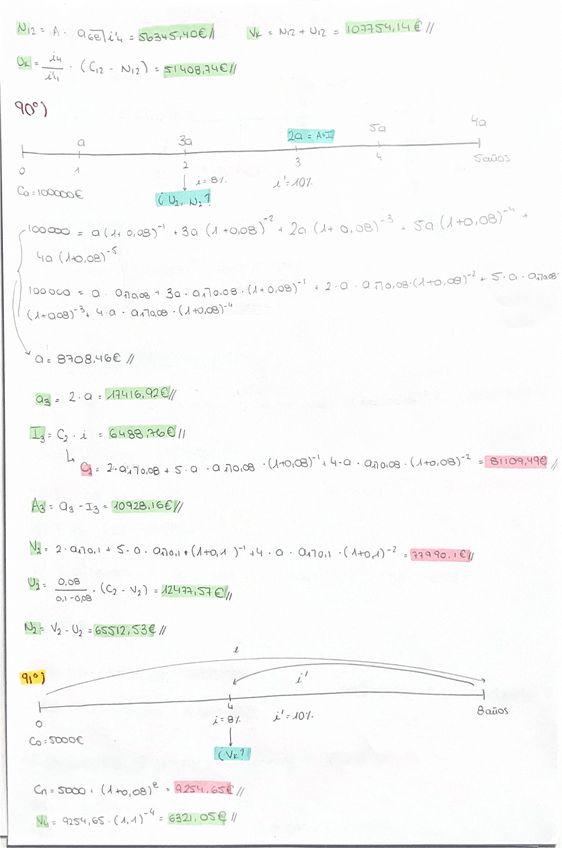 N12 = A · a68⌉i'4 = 56345,40€// Vk = N12 + U12 = 107754,14€//
Uk = i4/i'4 · (C12 - N12) = 51408,74€//
90º)
a 3a 2a = A+I 5a 4a
0 1 2 3 4 5 años
C0 = 100000€ i = 8% i' = 10%
¿U2, N2?
100000 = a(1+0,08)^-1 + 3a(1+0,08)^-2 + 2a(1+0,08)^-3 + 5a(1+0,08)^-4 +
4a(1+0,08)^-5
100000 = a · a1⌉0,08 + 3a · a1⌉0,08 · (1+0,08)^-1 + 2·a · a1⌉0,08·(1+0,08)^-2 + 5·a · a1⌉0,08·
(1+0,08)^-3 + 4·a · a1⌉0,08 · (1+0,08)^-4
a = 8708,46€ //
a3 = 2·a = 17416,92€//
I3 = C2 · i = 6488,76€//
C2 = 2·a1⌉0,08 + 5·a · a1⌉0,08 · (1+0,08)^-1 + 4·a · a1⌉0,08 · (1+0,08)^-2 = 81109,49€ //
A3 = a3 - I3 = 10928,16€//
V2 = 2·a1⌉0,1 + 5·a · a1⌉0,1 · (1+0,1)^-1 + 4·a · a1⌉0,1 · (1+0,1)^-2 = 77990,1€//
U2 = 0,08/0,1-0,08 · (C2 - V2) = 12477,57€//
N2 = V2 - U2 = 65512,53€//
i
91º) i'
0 4 8 años
C0 = 5000€ i = 8% i' = 10%
¿Vk?
Cn = 5000 · (1+0,08)^8 = 9254,65€//
V4 = 9254,65 · (1,1)^-4 = 6321,05€//